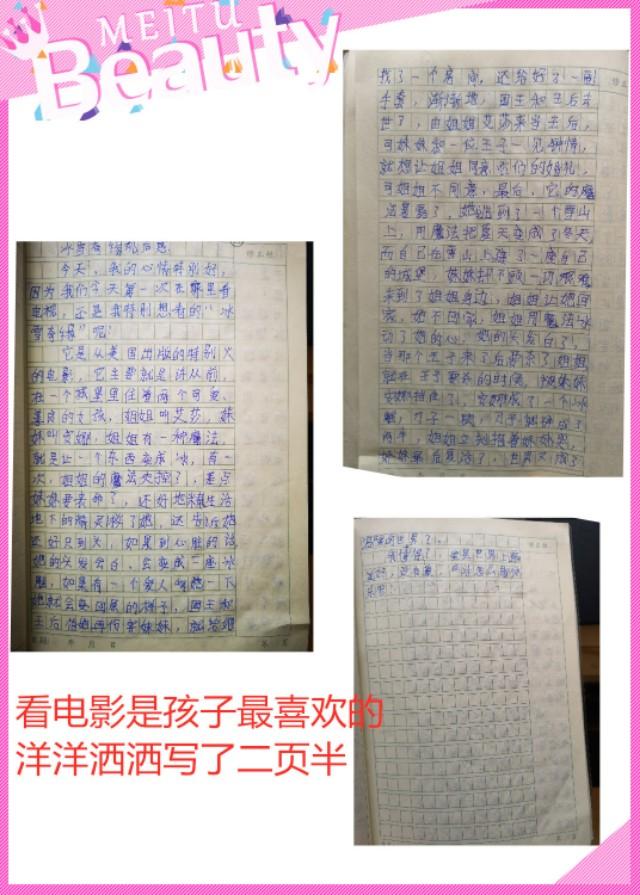 MEITU
Beauty
今天，我的心情特别好，
因为我们今天第一次在
电视，还是我特别想看的“冰
雪奇缘”呢！
它是从美国出版的特别火
的电影，它主要就是讲从前，
在一个城堡里住着两个可爱、
善良的女孩，姐姐叫艾莎，妹
妹叫安娜，姐姐有一种魔法，
就是让一个东西变成冰，有一
次，姐姐的魔法失控了，差点
妹妹要丧命了，还好地球生活
地下的精灵救了她，还告诉她
还好只到头，如果到心脏的话
她的头发会白，会变成一座冰
雕，如果有一个爱人吻她一下
她就会变回原的样子，国王和
王后怕她再伤害妹妹，就给她
找了一个房间，还给好了一副
手套，渐渐地，国王和王后去
世了，由姐姐艾莎来当王后，
可妹妹和一位王子一见钟情，
就想让姐姐同意他们的婚礼，
可姐姐不同意，最后，它的魔
法暴露了，她跑到了一个雪山
上，用魔法把夏天变成了冬天，
而自己在雪山上建了一座自己
的城堡，妹妹却不顾一切艰难
来到了姐姐身边，姐姐让她回
家，她不回家，姐姐用魔法冰
动了她的心，她的头发白了，
当那个王子来了后要杀了姐姐
就在王子要杀的时候，
安娜挡住了，安娜成了一个冰
雕，
两半，姐姐立刻抱着妹妹哭，
妹妹最后复活了，世界又成了
温暖的世界了。
我懂得了，
看电影是孩子最喜欢的
洋洋洒洒写了二页半